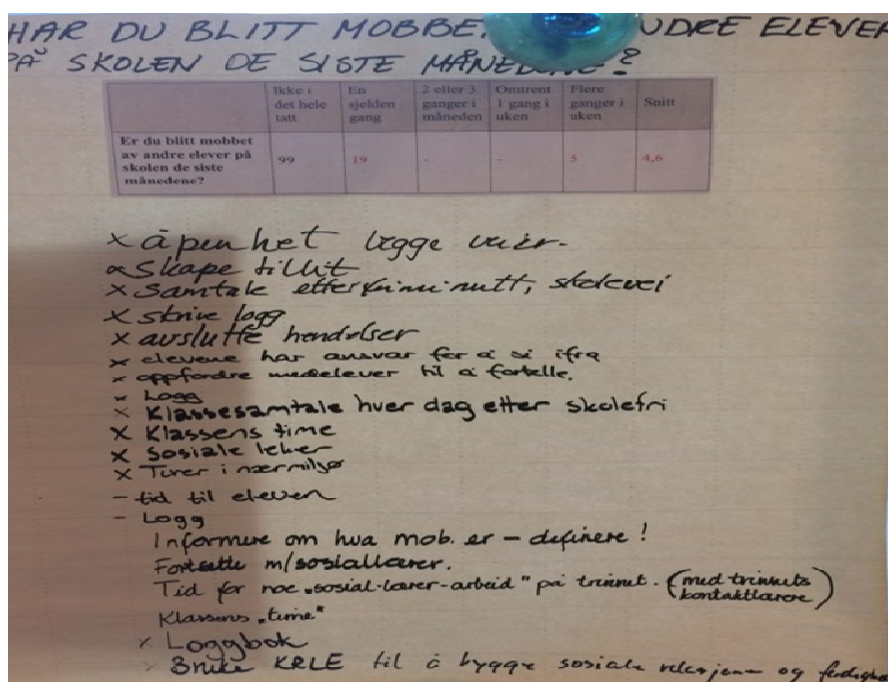 HAR DU BLITT MOBBE UDRE ELEVER
PÅ SKOLEN DE SISTE MÅNEDENE?
Ikke i det hele tatt
En sjelden gang
2 eller 3 ganger i måneden
Omtrent 1 gang i uken
Flere ganger i uken
Snitt
Er du blitt mobbet av andre elever på skolen de siste månedene?
99 19 - - 5 4,6
x åpenhet legge
x Skape tillit
x samtale etter friminutt, skolevei
x skrive logg
x avslutte hendelser
x elevene har ansvar for å si ifra
x oppfordre medelever til å fortelle.
x Logg
x Klassesamtale hver dag etter skolefri
x Klassens time
x sosiale leker
x Turer i nærmiljø
- tid til eleven
- Logg
Informere om hva mob. er - definere!
Fortsette m/sosiallærer.
Tid for noe "sosial-lærer-arbeid" på trinnet. (med trinnets kontaktlærere)
Klassens "time"
x Loggbok
x Bruke KRLE til å bygge sosiale relasjoner og ferdighe